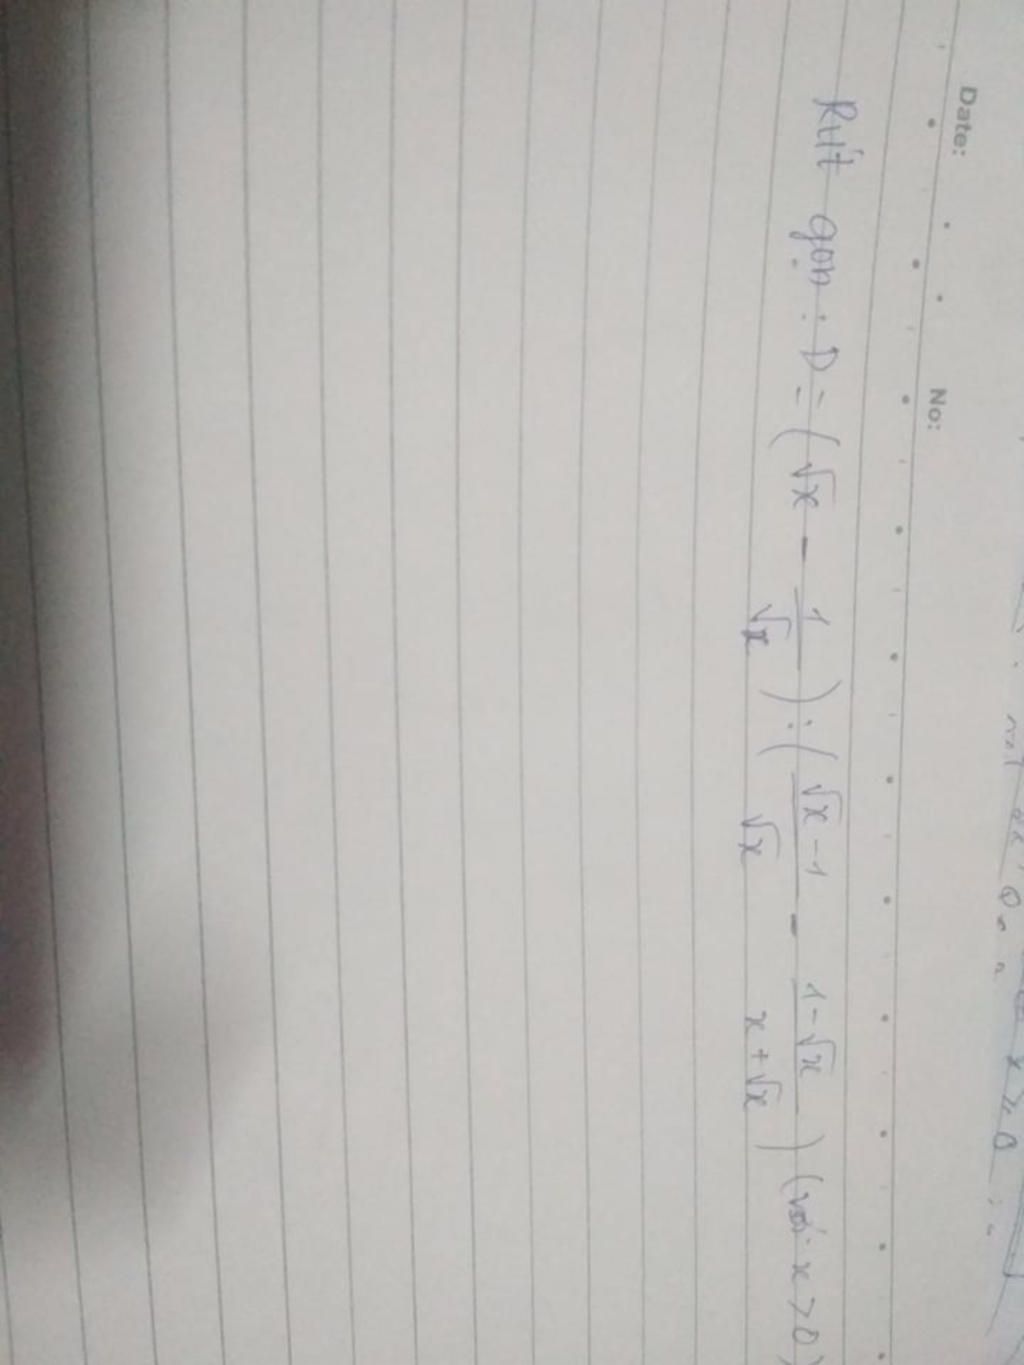 Date: No:
Rút gọn : D = (√x - 1/√x) : (√x - 1/√x - 1 - √x/x + √x) (với x > 0)